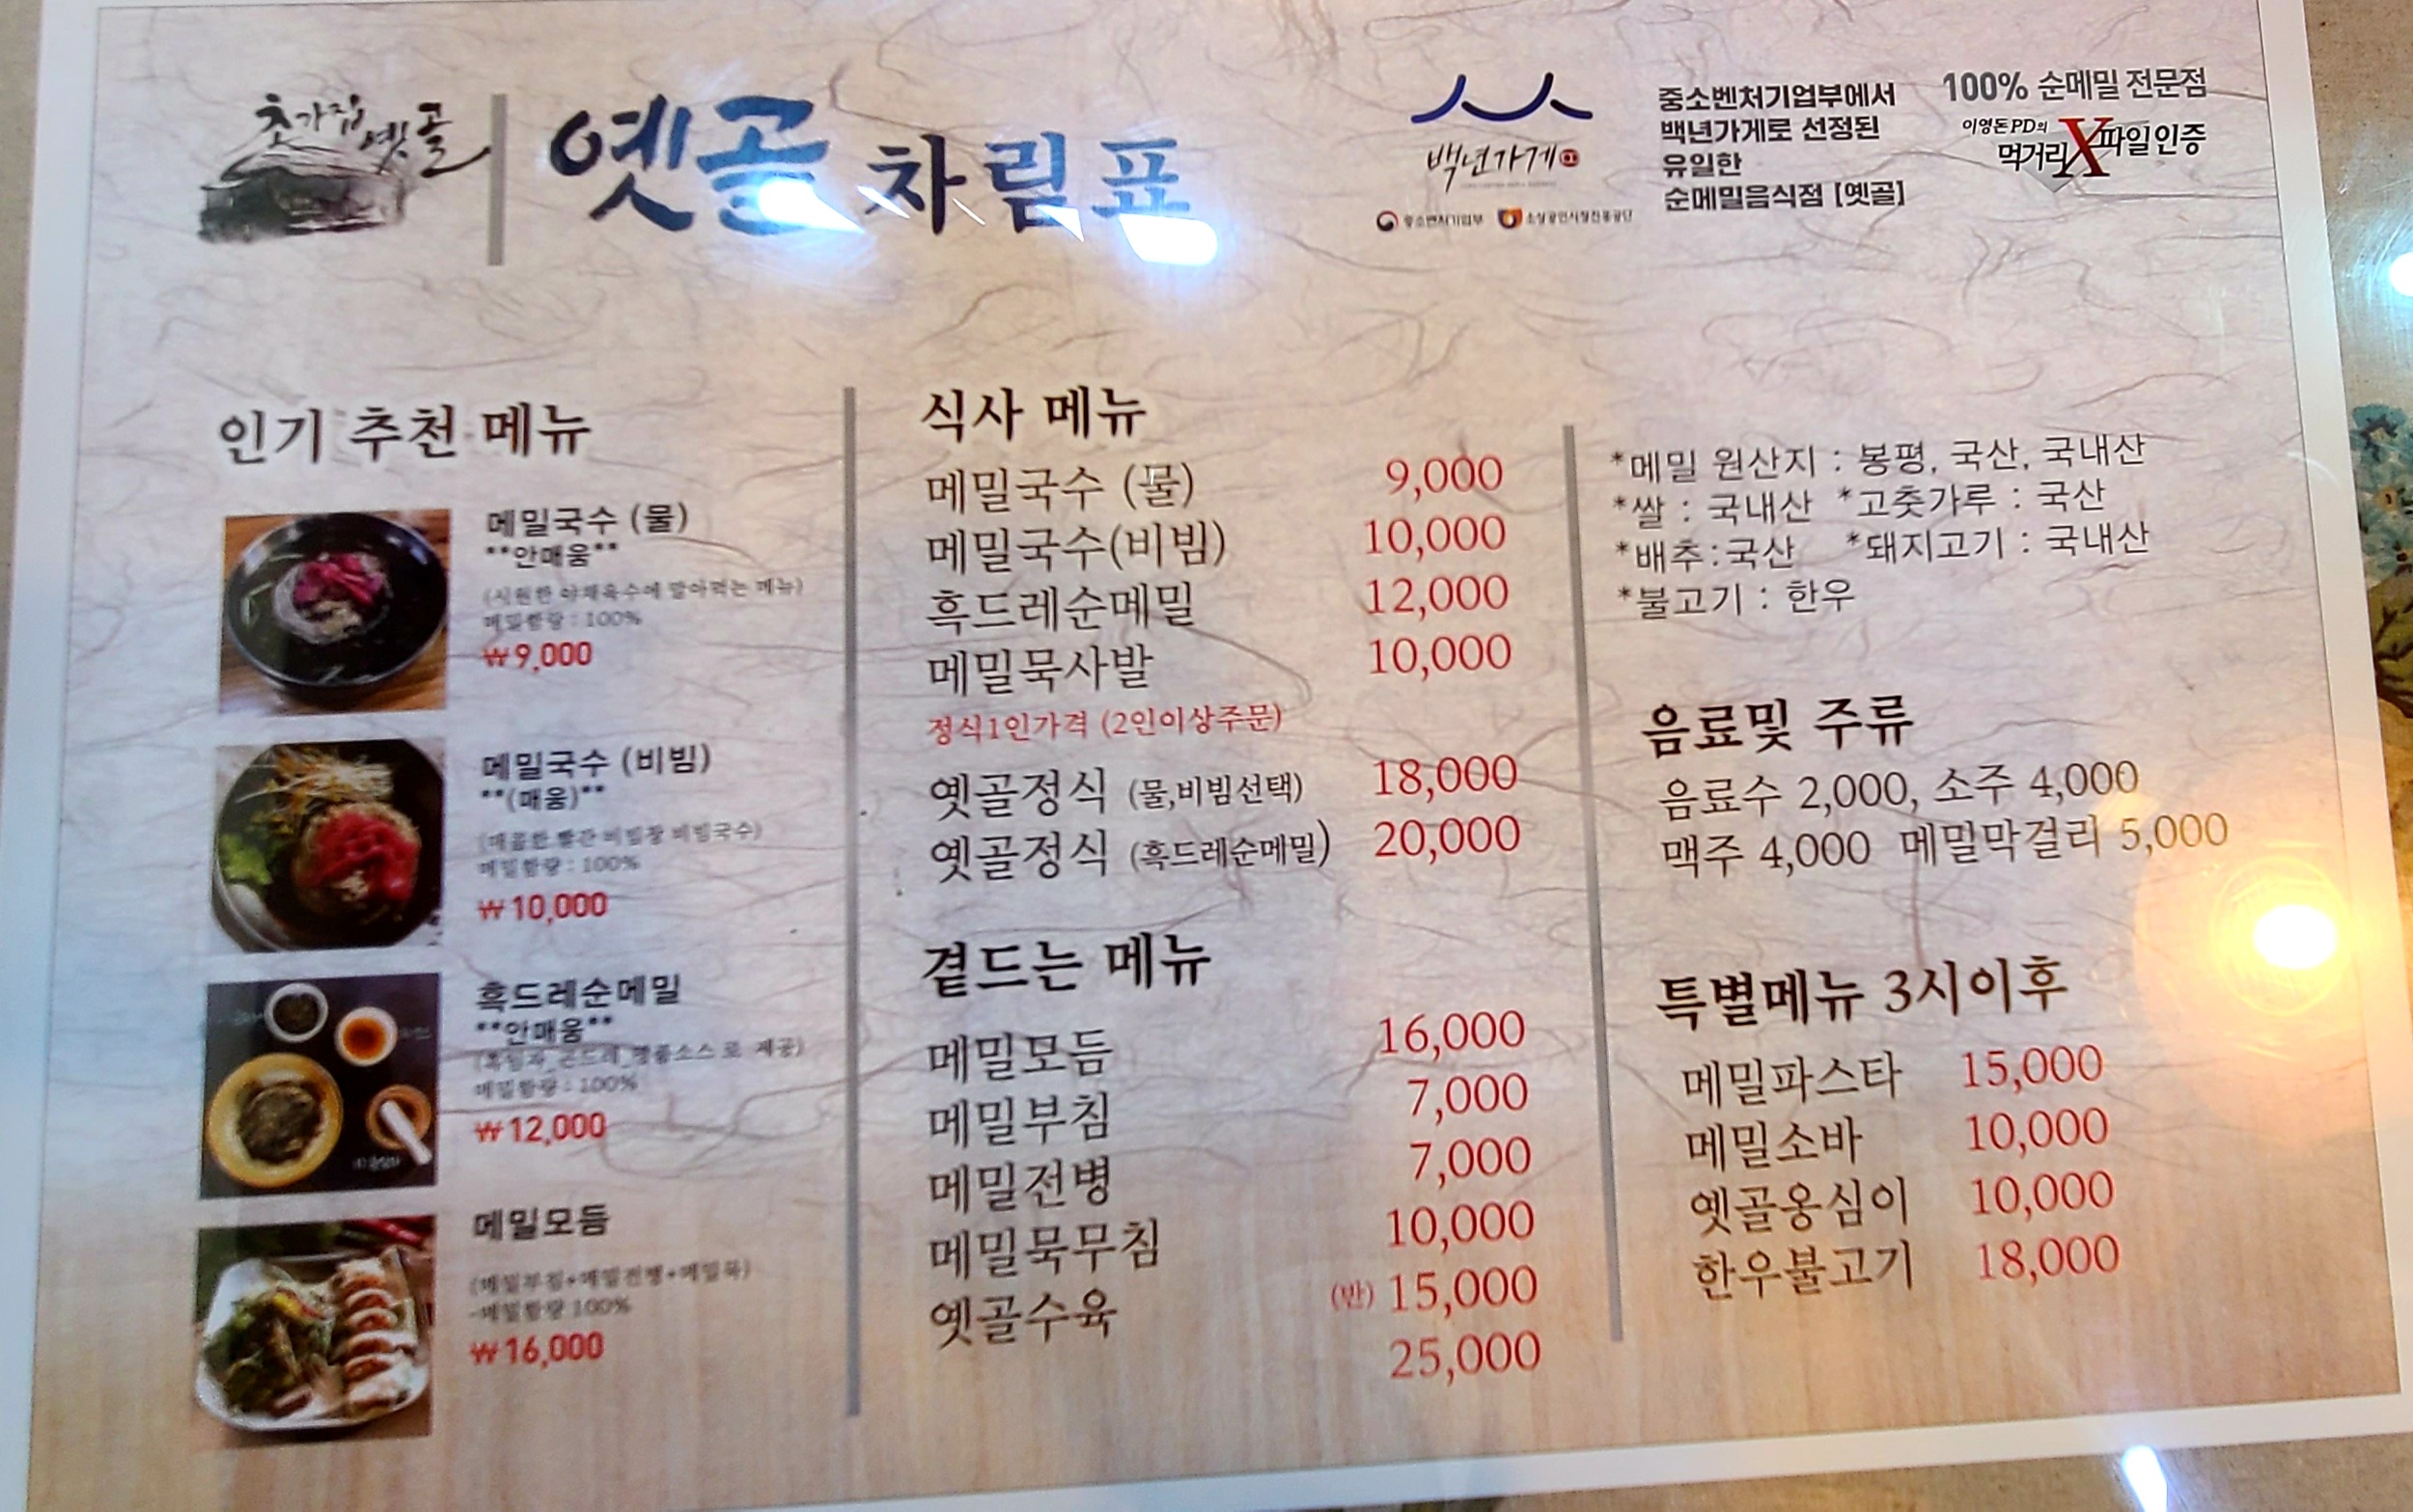 초가집 옛골
옛골 차림표
백년가게
중소벤처기업부 소상공인시장진흥공단
중소벤처기업부에서
백년가게로 선정된
유일한
순메밀음식점 [옛골]
100% 순메밀 전문점
이영돈PD의
먹거리X파일인증
인기 추천 메뉴
메밀국수 (물)
**안매움**
(시원한 야채육수에 말아먹는 메뉴)
메밀함량 : 100%
₩9,000
메밀국수 (비빔)
**(매움)**
(매콤한 빨간 비빔장 비빔국수)
메밀함량 : 100%
₩10,000
흑드레순메밀
**안매움**
(흑임자_곤드레_명품소스로 제공)
메밀함량 : 100%
₩12,000
메밀모듬
(메밀부침+메밀전병+메밀묵)
-메밀함량 100%
₩16,000
식사 메뉴
메밀국수 (물) 9,000
메밀국수(비빔) 10,000
흑드레순메밀 12,000
메밀묵사발 10,000
정식1인가격 (2인이상주문)
옛골정식 (물,비빔선택) 18,000
옛골정식 (흑드레순메밀) 20,000
곁드는 메뉴
메밀모듬 16,000
메밀부침 7,000
메밀전병 7,000
메밀묵무침 10,000
옛골수육 (반) 15,000
25,000
*메밀 원산지 : 봉평, 국산, 국내산
*쌀 : 국내산 *고춧가루 : 국산
*배추:국산 *돼지고기 : 국내산
*불고기 : 한우
음료및 주류
음료수 2,000, 소주 4,000
맥주 4,000 메밀막걸리 5,000
특별메뉴 3시이후
메밀파스타 15,000
메밀소바 10,000
옛골옹심이 10,000
한우불고기 18,000